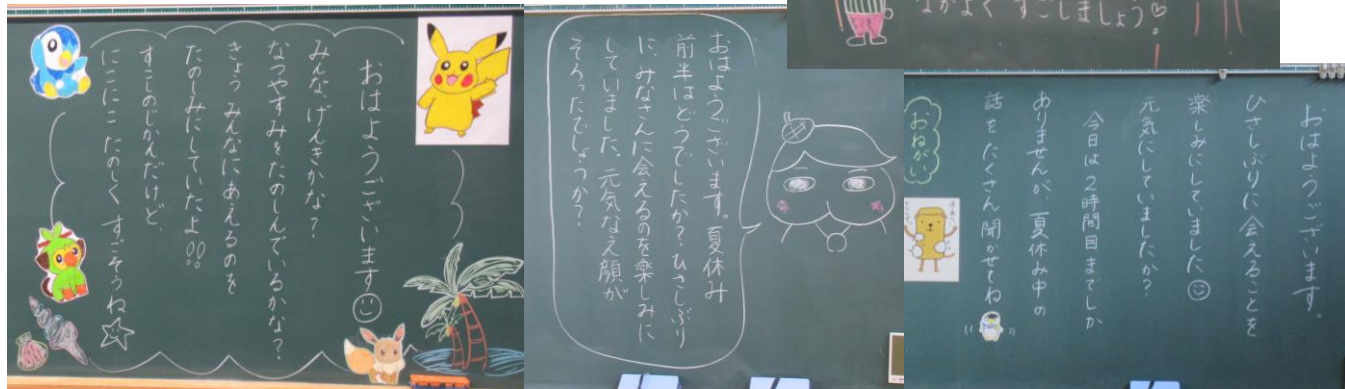 おはようございます
みんな、げんきかな？
なつやすみをたのしんでいるかな？
きょう みんなにあえるのを
たのしみにしていたよ!!
すこしのじかんだけど、
にこにこ たのしく すごそうね
おはようございます。夏休み
前半はどうでしたか？ひさしぶり
に、みなさんに会えるのを楽しみに
していました。元気なえ顔が
そろったでしょうか？
なかよく すごしましょう♡
おはようございます。
ひさしぶりに会えることを
楽しみにしていました
元気にしていましたか？
今日は2時間目までしか
ありませんが、夏休み中の
話をたくさん聞かせてね
おねがい